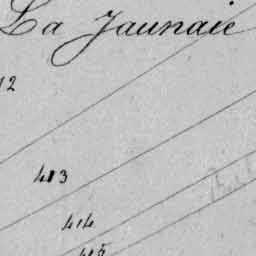 La Jaunaie
12
413
414
415